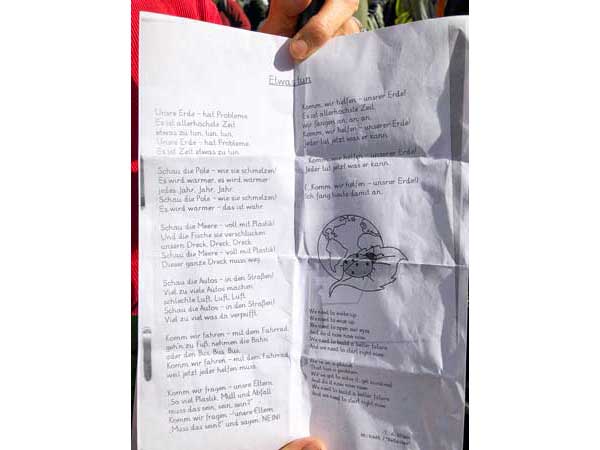 Etwas tun
Unsre Erde – hat Probleme
Es ist allerhöchste Zeit
etwas zu tun, tun, tun,
Unsre Erde – hat Probleme
Es ist Zeit etwas zu tun
Schau die Pole – wie sie schmelzen!
Es wird wärmer, es wird wärmer
jedes Jahr, Jahr, Jahr.
Schau die Pole – wie sie schmelzen!
Es wird wärmer – das ist wahr
Schau die Meere – voll mit Plastik!
Und die Fische sie verschlucken
unsern Dreck, Dreck, Dreck
Schau die Meere – voll mit Plastik!
Dieser ganze Dreck muss weg
Schau die Autos – in den Straßen!
Viel zu viele Autos machen
schlechte Luft, Luft, Luft.
Schau die Autos – in den Straßen!
Viel zu viel was da verpufft.
Komm wir fahren – mit dem Fahrrad,
geh'n zu Fuß, nehmen die Bahn
oder den Bus, Bus, Bus.
Komm wir fahren – mit dem Fahrrad,
weil jetzt jeder helfen muss.
Komm wir fragen – unsre Eltern
"So viel Plastik, Müll und Abfall
muss das sein, sein, sein?"
Komm wir fragen – unsre Eltern
"Muss das sein?" und sagen, NEIN!
Komm, wir helfen – unsrer Erde!
Es ist allerhöchste Zeit,
wir fangen an, an, an.
Komm, wir helfen – unserer Erde!
Jeder tut jetzt was er kann.
Komm, wir helfen – unserer Erde!
Jeder tut jetzt was er kann.
(: Komm, wir helfen – unsrer Erde!)
Ich fang heute damit an.
We need to wake up
We need to wise up
We need to open our eyes
And do it now now now
We need to build a better future
And we need to start right now
We're on a planet
That has a problem
We've got to solve it, get involved
And do it now now now
We need to build a better future
And we need to start right now